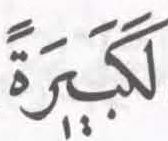 لَكَبِيرَةً